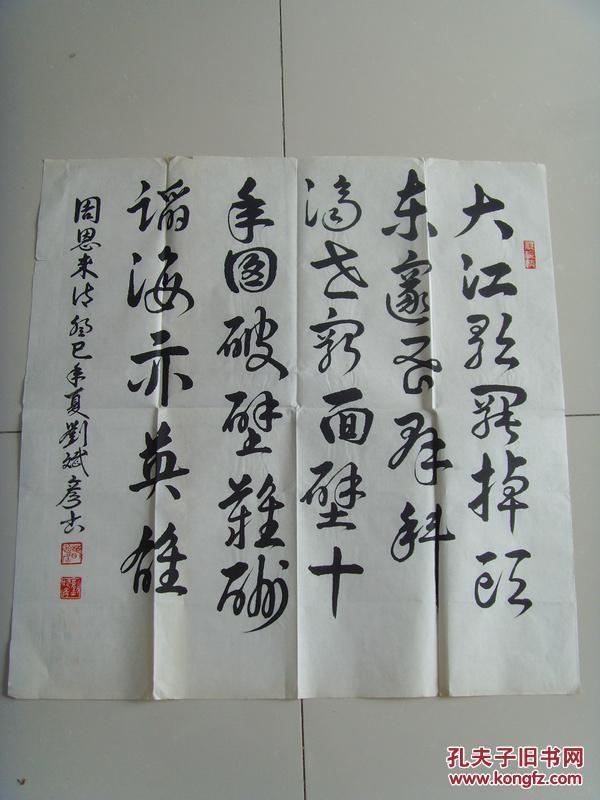 大江歌罷掉頭
东邃密群科
濟世窮面壁十
年图破壁難酬
蹈海亦英雄
周恩来诗癸巳年夏劉斌彦书
孔夫子旧书网
www.kongfz.com